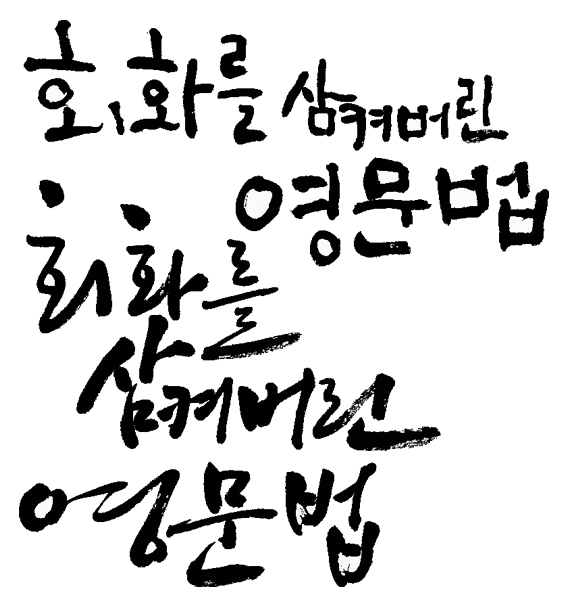 회화를 삼켜버린
영문법
회화를
삼켜버린
영문법